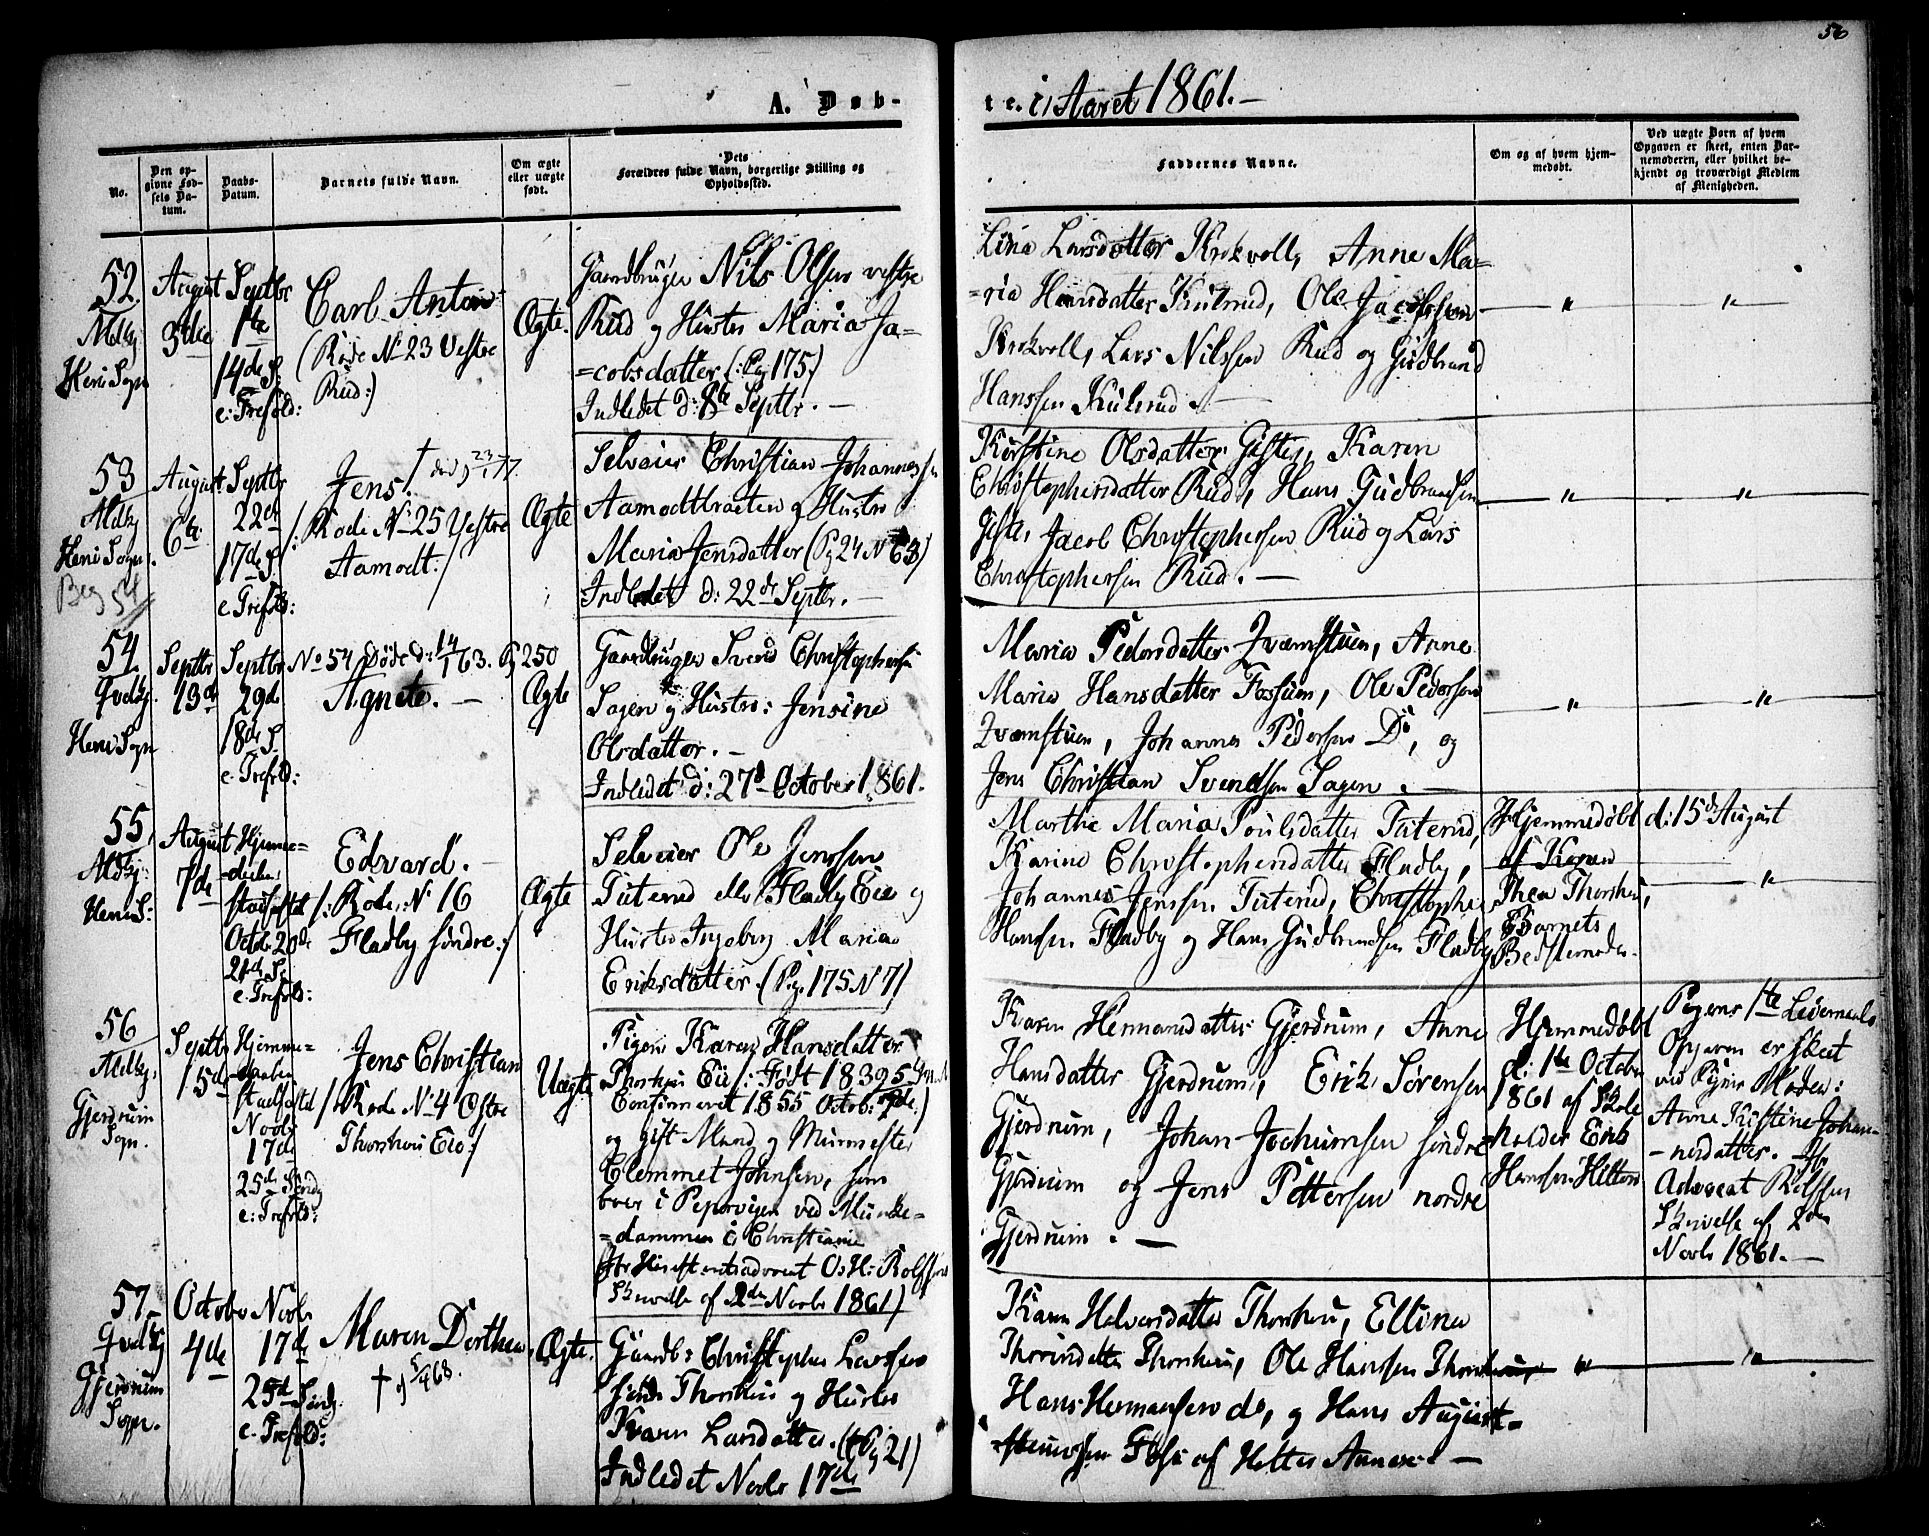 56
A. Døb-
te. i Aaret 1861. —
No.
Den op-
givne Fød-
sels Da-
tum.
Daabs-
Datum.
Barnets fulde Navn.
Om ægte
eller uægte
født.
Dets
Forældres fulde Navn, borgerlige Stilling og
Opholdssted.
Faddernes Navne.
Om og af hvem hjem-
medøbt.
Ved uægte Børn af hvem
Opgaven er skeet, enten Bar-
nemoderen, eller hvilket be-
kjendt og troværdigt Medlem
af Menigheden.
52
Mdkj
Heni Sogn
August
3die
Septbr
1te
14de S.
e: Trefold:
Carl Anton
(Rode No 23 Vestre
Rud:)
Ægte.
Gaardbruger Nils Olsen vestre
Rud og Hustro Maria Ja-
=cobsdatter (: Pg 175)
Indledet d: 8de Septbr. —
Lina Larsdatter Krokvold, Anne Ma=
=ria Hansdatter Kulsrud, Ole Jacobsen
Krokvold, Lars Nilssen Rud og Gudbrand
Hanssen Kulsrud. —
— " —
"
53
Mdkj
Heni Sogn.
Beg 54
August
6te
Septbr
22de
17de S.
e. Trefold:
Jens. † død 23/9 77.
/: Rode No 25 Vestre
Aamodt:/
Ægte
Selveier Christian Johannessen
Aamodtbraaten og Hustro
Maria Jensdatter (Pg 24 N 63)
Indledet d: 22de Septbr. —
Kirstine Olsdatter Gister, Karen
Christophersdatter Rud, Hans Gudbrandsen
Gister, Jacob Christophersen Rud og Lars
Christophersen Rud. —
— " —
"
54.
Qvdkj.
Heni Sogn
Septbr
13de
Septbr
29de
18de S.
e. Trefold:
No 54 Døde d: 14/1 63. Pg 250
Agnete. —
Ægte
Gaardbruger Svend Christophersen
Sagen og Hustro: Jensine
Olsdatter. —
Indledet d: 27de October 1861.
Maria Pedersdatter Kvæmstuen, Anne
Maria Hansdatter Fossum, Ole Pedersen
Kvæmstuen, Johannes Pedersen Do, og
Jens Christian Svendsen Sagen. —
— " —
— "
55.
Mdkj:
Heni S:
August
7de
Hjemme=
-daaben
stadfæstet
Octbr 20de
21de S.
e. Trefold:
Edvard. —
/: Rode: No 16
Fladby søndre:/
Ægte
Selveier Ole Jenssen
Tuterud eller Fladby Eie og
Hustro Ingeborg Maria
Eriksdatter. (Pg. 175 N 7)
Marthe Maria Poulsdatter Tuterud,
Karine Christophersdatter Fladby,
Johannes Jenssen Tuterud, Christopher
Hansen Fladby og Hans Gudbrandsen Fladby
Hjemmedøbt d: 15de August
af Karen
Thea Thorshui,
Barnets
Bedstemoder.
— "
56
Mdkj.
Gjerdrum
Sogn.
Septbr
15de
Hjemme=
-daaben
stadfæstet
Novbr
17de
25de Søndg
e: Trefold:
Jens Christian
/: Rode No 4 Østre
Thorshui Eie:/
Uægte
Pigen Karen Hansdatter
Thorshui Eie /: Født 1839
Confirmeret 1855 Octob: 7de.)
og gift Mand og Muurmester
Clemmet Johnsen, som
boer i Pipervigen ved Munke=
=dammen i Christiania
Skrivelse af 2den Novbr 1861)
Karen Hermansdatter Gjerdrum, Anne
Hansdatter Gjerdrum, Erik Sørensen
Gjerdrum, Johan Jochumsen søndre
Gjerdrum og Jens Pettersen nordre
Gjerdrum. —
Hjemmedøbt
d: 1te October
1861 af Skole
holder Erik
Hanssen Hilton
Pigens 1te Leiermaal
Opgaven er skeet
ved Pigens Moder:
Anne Kirstine Johan-
-nesdatter.
Advocat Rolfsen
Skrivelse af 2den
Novbr 1861. —
57
Qvdkj
Gjerdrum
Sogn.
October
4de
Novbr
17de
25de Søndg.
e. Trefold:
Maren Dorthea.
† 5/4 68.
Ægte.
Gaardb: Christopher Larssen
søndre Thorshui og Hustro
Karen Larsdatter. (Pg 21)
Indledet Novbr 17de
Karen Halvorsdatter Thorshui, Ellina
Thorsdatter Thorshui, Ole Hanssen Thorshui,
Hans Hermansen do, og Hans August
"
"